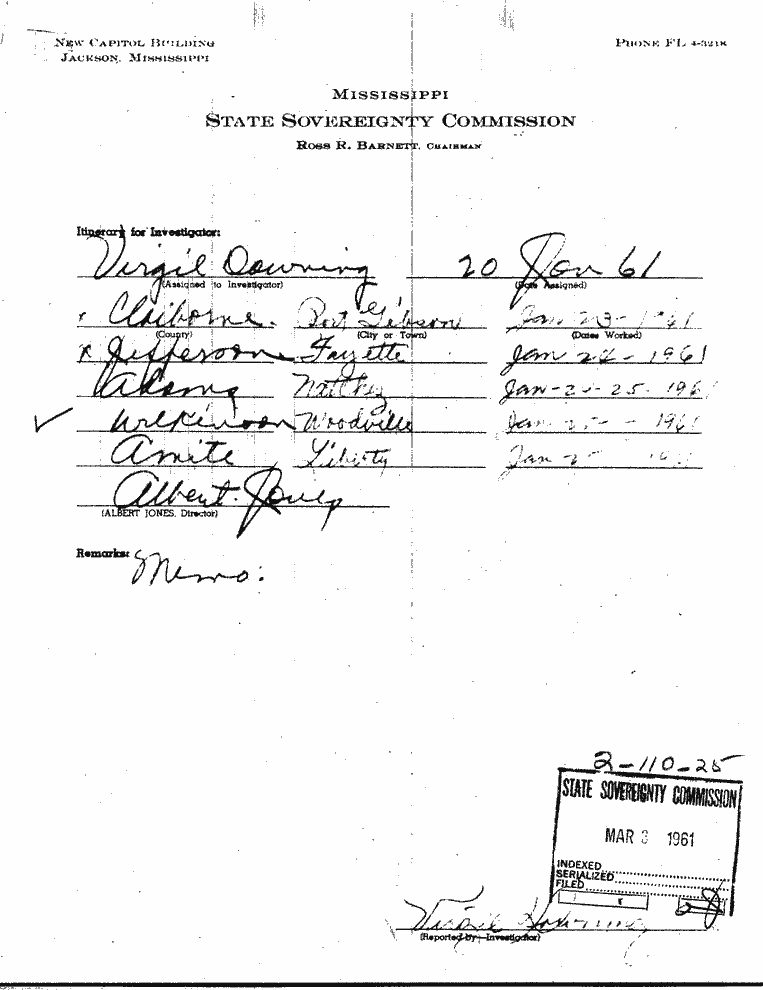 NEW CAPITOL BUILDING
JACKSON, MISSISSIPPI
PHONE FL 4-3218
MISSISSIPPI
STATE SOVEREIGNTY COMMISSION
ROSS R. BARNETT, CHAIRMAN
Itinerary for Investigator:
Virgil Downing 20 Jan 61
(Assigned to Investigator) (Date Assigned)
x Claiborne. Port Gibson Jan 23 - 1961
(County) (City or Town) (Dates Worked)
x Jefferson Fayette Jan 24 - 1961
Adams Natchez Jan-24-25-1961
✓ Wilkinson Woodville Jan 25 - 1961
Amite Liberty Jan
Albert Jones
(ALBERT JONES, Director)
Remarks:
Memo:
2-110-25
STATE SOVEREIGNTY COMMISSION
MAR 3 1961
INDEXED
SERIALIZED
FILED
Virgil Downing
(Reported by—Investigator)